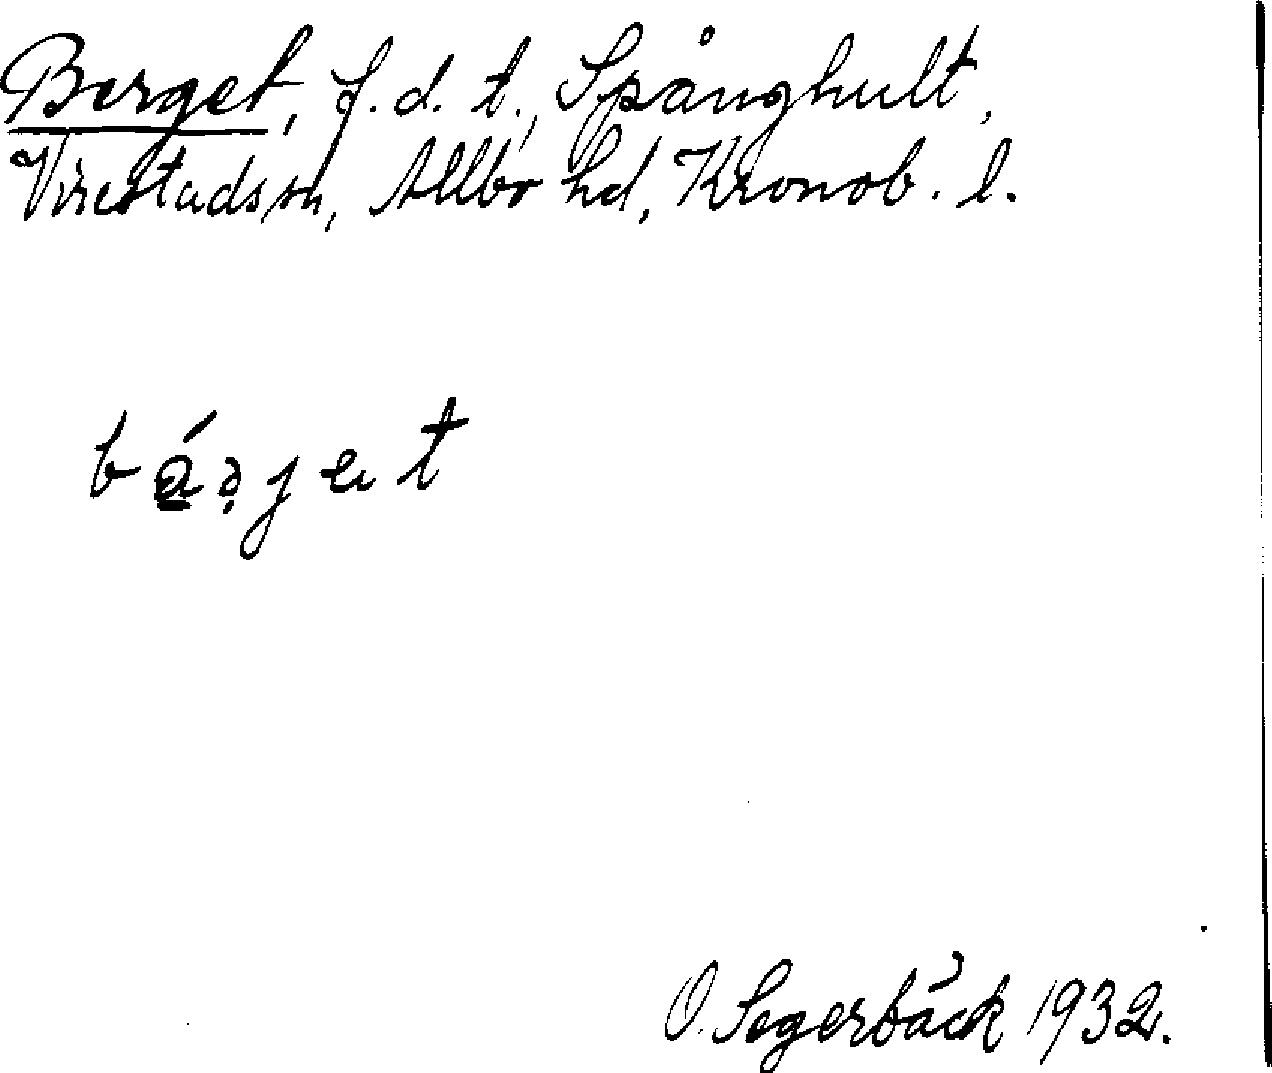 Berget, f.d. t., Spånghult,
Virestads sn, Allbo hd, Kronob. l.
O. Segerbäck 1932.